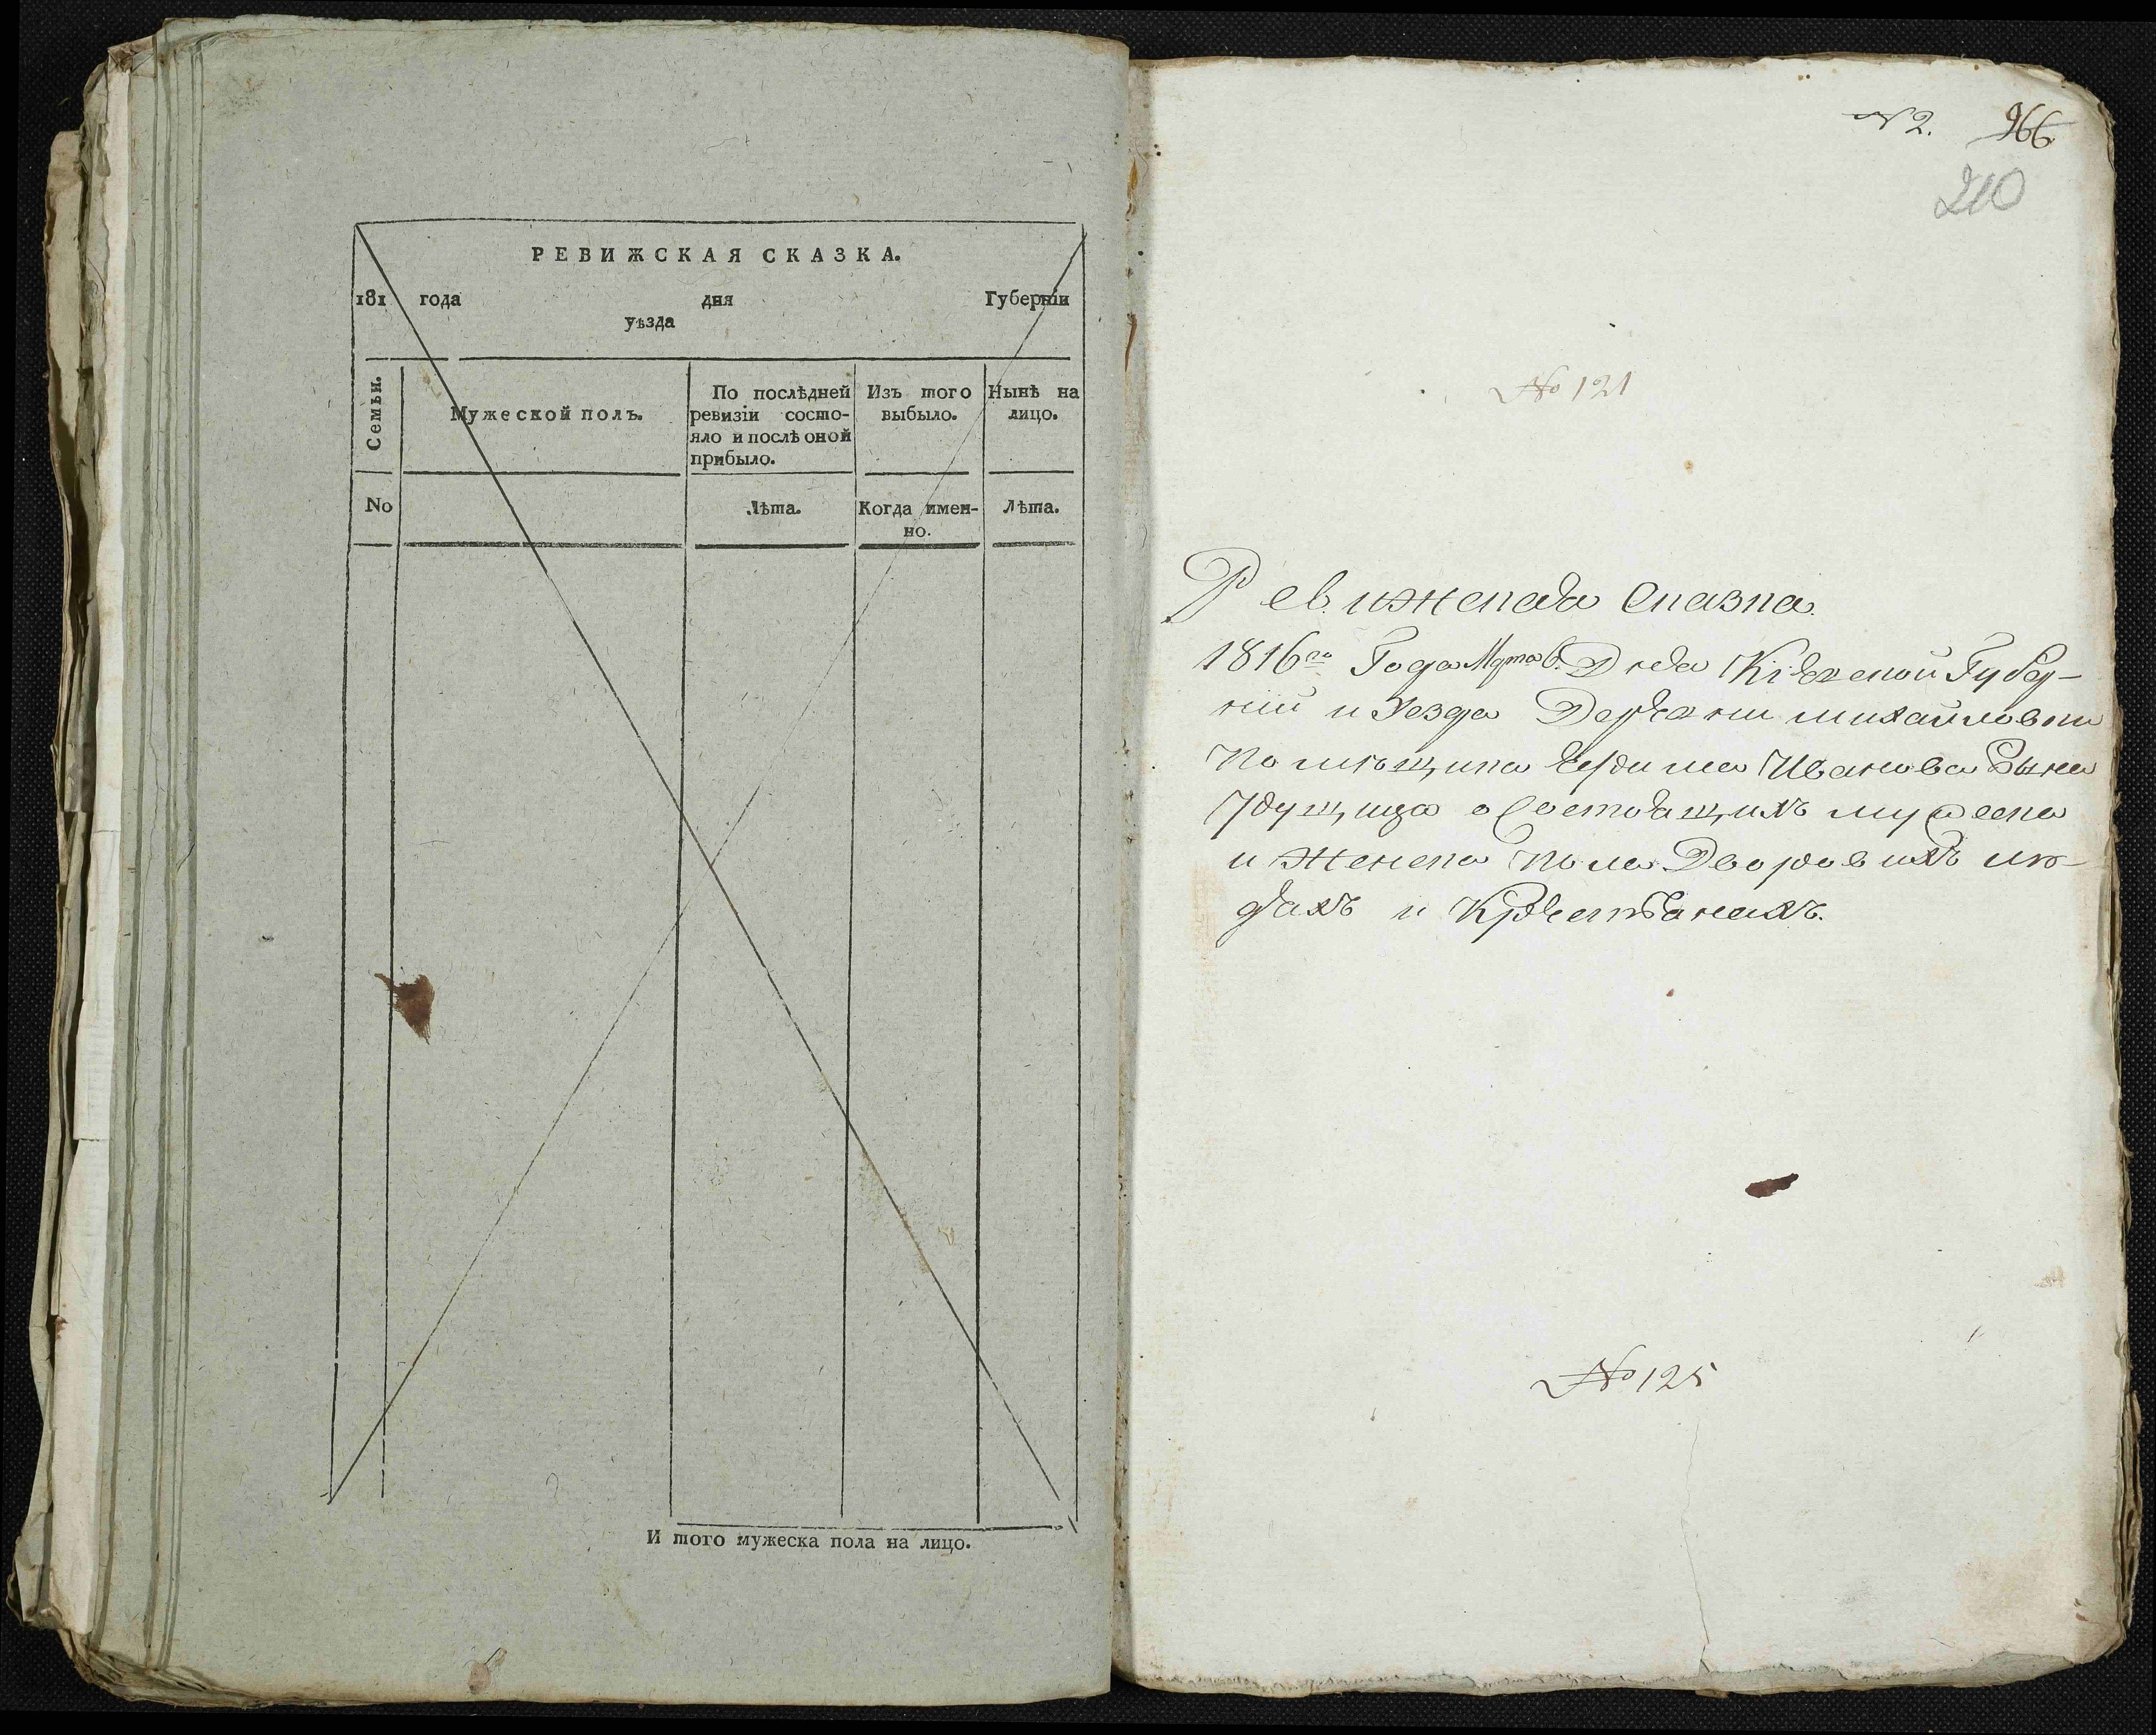 РЕВИЖСКАЯ СКАЗКА.
181 года дня Губерніи
уѣзда
Семьи.
Мужеской полъ.
По послѣдней
ревизіи состо-
яло и послѣ оной
прибыло.
Изъ того
выбыло.
Нынѣ на
лицо.
No
Лѣта.
Когда имен-
но.
Лѣта.
И того мужеска пола на лицо.
№ 2. 966
210
No 121
Ревижская Сказка.
1816го Года Марта 6. Дня Кіевской Губер-
ніи и Уезда Деревни михайловки
Помѣщика Ефима Иванова Сына
о Состоящихъ мужеска
и Женска пола Дворовихъ лю-
дяхъ и Крестьянахъ.
No 125